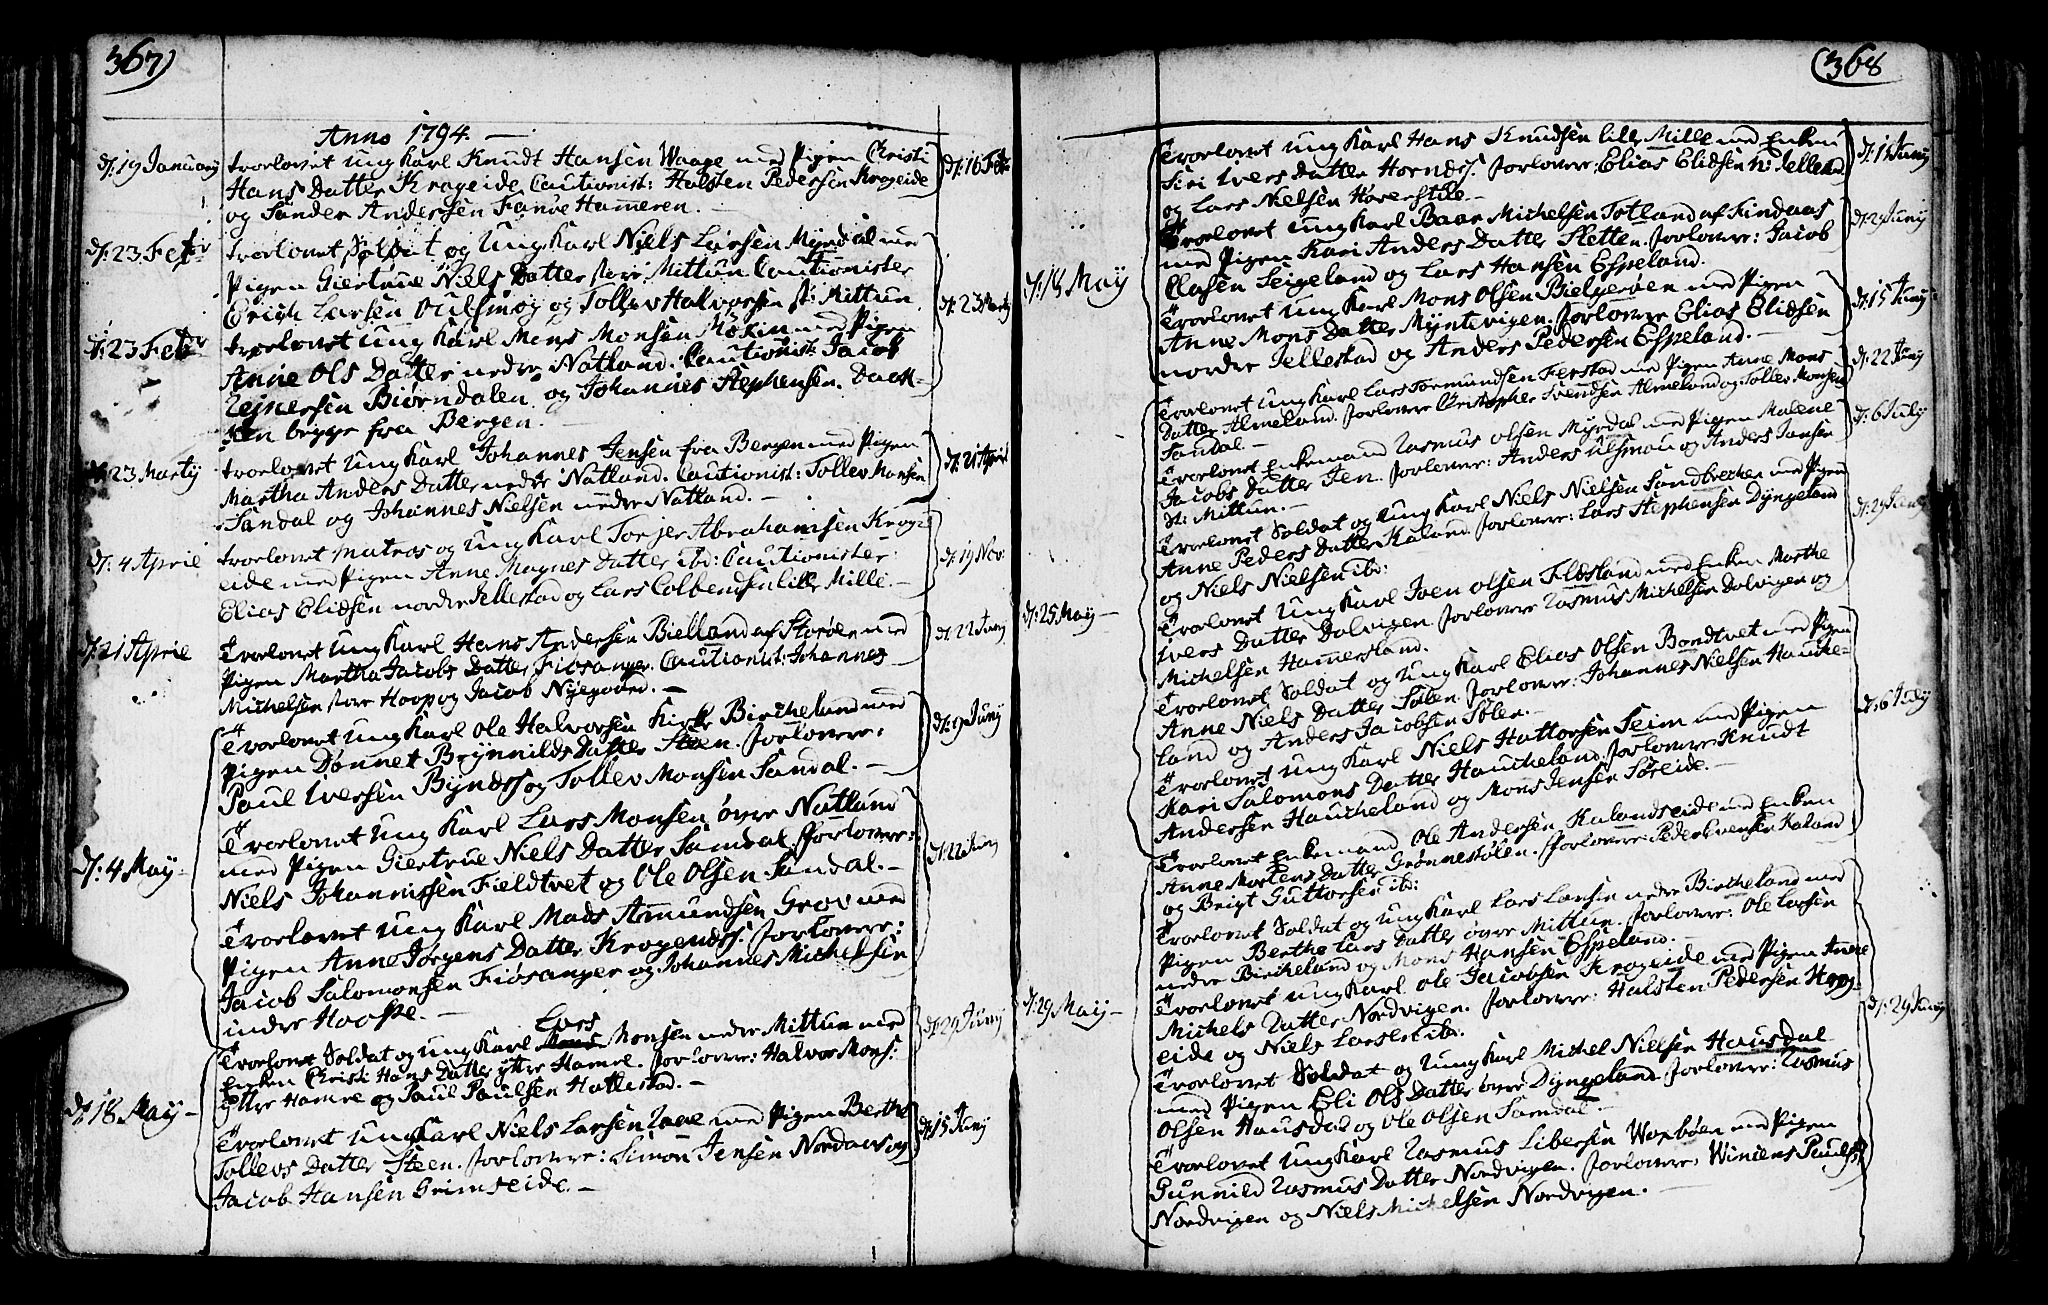 367)
Anno 1794. —
d: 19 January troelovet Ung Karl Knudt Hansen Waage med Pigen Christi d: 16 Febr
Hans Datter Krogeide Cautionist: Halsten Pedersen Krogeide
og Sander Andersen Fanöe Hameren. —
d: 23 Febr troelovet Soldat og Ung Karl Niels Larsen Myrdal med
Pigen Giertrue Niels Datter store Mittun Cautionister
Erich Larsen Oulsmog og Tollev Halvorsen st: Mittun d: 23 Marty
d: 23 Febr troelovet Ung Karl Mons Monsen Møkin med Pigen
Anne Ols Datter nedre Natland. Cautionist: Jacob
Rejnersen Biørndalen og Johannes Stephensen. Dack-
ken begge fra Bergen. —
d: 23 Marty troelovet Ung Karl Johannes Jensen fra Bergen med Pigen d: 21 April
Martha Anders Datter nedre Natland. Cautionist: Tollev Monsen
Sandal og Johannes Nielsen nedre Natland. —
d: 4 Aprile troelovet Matros og Ung Karl Torger Abrahamsen Krog- d: 19 Nov:
eide med Pigen Anne Magnes Datter ibd: Cautionister
Elias Eliæsen nordre Jellestad og Lars Colbendsen lille Mille. —
d: 21 Aprile Troelovet Ung Karl Hans Andersen Bielland af Storøen med d: 22 Juny
Pigen Martha Jacobs Datter Fiøsanger. Cautionist: Johannes
Michelsen store Hoop og Jacob Nyegaard. —
Troelovet Ung Karl Ole Halvorsen Kirk Bircheland med d: 9 Juny
Pigen Dønnet Brynnilds Datter Steen. forlovere:
Paul Iversen Byndes og Tollev Monsen Sandal. —
d: 4 May - Troelovet Ung Karl Lars Monsen øvre Natland d: 22 Juny
med Pigen Giertrue Niels Datter Sandal. forlovere:
Niels Johannissen Fieldtvet og Ole Olsen Sandal. —
Troelovet Ung Karl Mads Amundsen Grov med
Pigen Anne Jørgens Datter Krogenæs. forlovere:
Jacob Salomonsen Fiøsanger og Johannes Michelsen
indre Hoope. —
Lars
Troelovet Soldat og Ung Karl Mons Monsen nedre Mittun med d: 29 Juny
Enken Christi Hans Datter ytter Hamre. forlovere: Halvor Mons:
d: 18 May - ytter Hamre og Paul Paulsen Hattestad. —
Troelovet Ung Karl Niels Larsen Raae med Pigen Berthe d: 15 Juny
Tollevs Datter Steen. forlovere: Simon Jensen Nordaas og
Jacob Hansen Grimseide. —
(368
Troelovet Ung Karl Hans Knudsen lille Mille med Enken d: 1 Juny
Siri Ivers Datter Hornæs. forlovere: Elias Eliæsen N: Jellestad
og Lars Nielsen Haverstue —
Troelovet Ung Karl Baar Michelsen Totland af Findaas d: 29 Juny
med Pigen Kari Anders Datter Sletten. forlovere: Jacob
d: 18 May Clasen Seigeland og Lars Hansen Espeland.
Troelovet Ung Karl Mons Olsen Bielgerven med Pigen d: 15 Juny
Anne Mons Datter Myntevigen. forlovere Elias Eliæsen
nordre Jellestad og Anders Pedersen Espeland. —
Troelovet Ung Karl Lars Tormundsen Ferstad med Pigen Anne Mons d: 22 Juny
Datter Almeland. forlovere Christopher Svendsen Almeland og Tollev Monsen
Sandal —
Troelovet Enkemand Rasmus Olsen Myrdal med Pigen Malene d: 6 July
Jacobs Datter Jen. forlovere: Anders Ulsmau og Anders Jansen
St: Mittun. —
Troelovet Soldat og Ung Karl Niels Nielsen Sandbrecken med Pigen d: 29 Juny
Anne Peders Datter Kaland. forlovere: Lars Stephensen Dyngeland
og Niels Nielsen ibd:
d: 25 May — Troelovet Ung Karl Joen Olsen Flæsland med Enken Marthe
Ivers Datter Dolvigen forlovere Rasmus Michelsen Dolvigen og
Michelsen Hamersland.
Troelovet Soldat og Ung Karl Elias Olsen Bondtvet med Pigen
Anne Niels Datter Sølen. forlovere: Johannes Nielsen Hauke-
land og Anders Jacobsen Sølen. — d: 6 July
Troelovet Ung Karl Niels Hattorsen Seim med Pigen
Kari Salomons Datter Haucheland. forlovere Knudt
Andersen Haucheland og Mons Jensen Søreide. —
Troelovet Enkemand Ole Andersen Kalandseide med Enken
Anne Mortens Datter Grønnestølen. forlovere: Peder Evensen Kaland
og Brigt Guttorsen ibd:
Troelovet Soldat og Ung Karl Lars Larsen nedre Bircheland med
Pigen Berthe Lars Datter øvre Mittun. forlovere: Ole Larsen
nedre Bircheland og Mons Hansen Espeland. —
d: 29 May — Troelovet Ung Karl Ole Jacobsen Krogeide med Pigen Anne d: 29 Juny
Michels Datter Nordvigen. forlovere: Halsten Pedersen Krog-
eide og Niels Larsen ibd:
Troelovet Soldat og Ung Karl Michel Nielsen Hausdal
med Pigen Eli Ols Datter øvre Dyngeland. forlovere: Rasmus
Olsen Hausdal og Ole Olsen Sandal. —
Troelovet Ung Karl Rasmus Libersen Warbøen med Pigen
Gunnild Rasmus Datter Nordvigen. forlovere: Winiens Paulsen
Nordvigen og Niels Michelsen Nordvigen. —